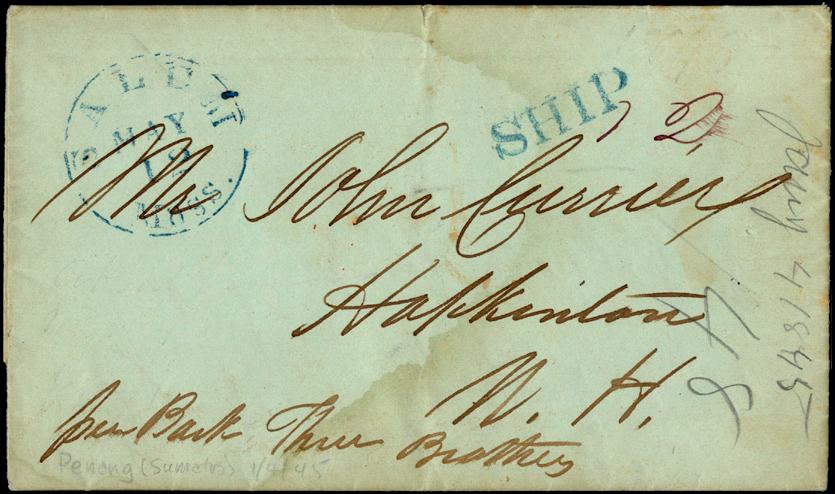 SALEM
MAY
12
Mass.
SHIP
12
Mr John Currier
Hopkinton
N. H.
per Bark Three Brothers
Penang (Sumatra) 1/4/45
Jany 4 1845